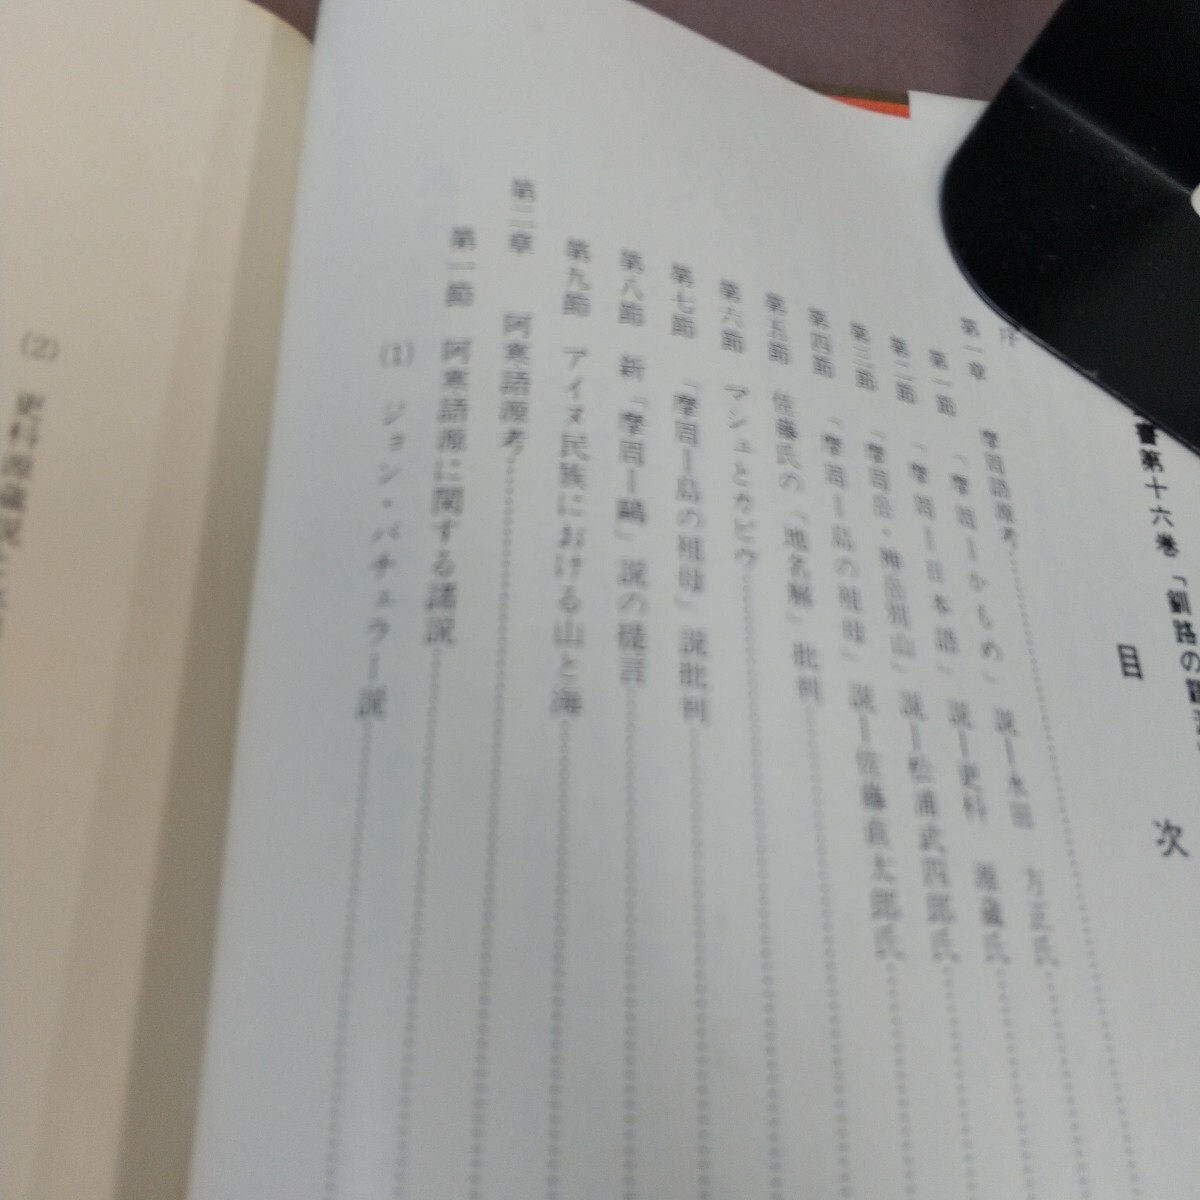 書第十六巻「釧路の
目次
序
第一章 摩周語源考
第一節 「摩周ーかもめ」説ー永田 方正氏
第二節 「摩周ー日本語」説ー更科 源蔵氏
第三節 「摩周岳・神岳別山」説ー松浦武四郎氏
第四節 「摩周ー島の祖母」説ー佐藤直太郎氏
第五節 佐藤氏の「地名解」批判
第六節 マシュとカピウ
第七節 「摩周ー島の祖母」説批判
第八節 新「摩周ー鷗」説の提言
第九節 アイヌ民族における山と海
第二章 阿寒語源考
第一節 阿寒語源に関する諸説
(1) ジョン・バチェラー説
(2) 更科源蔵説